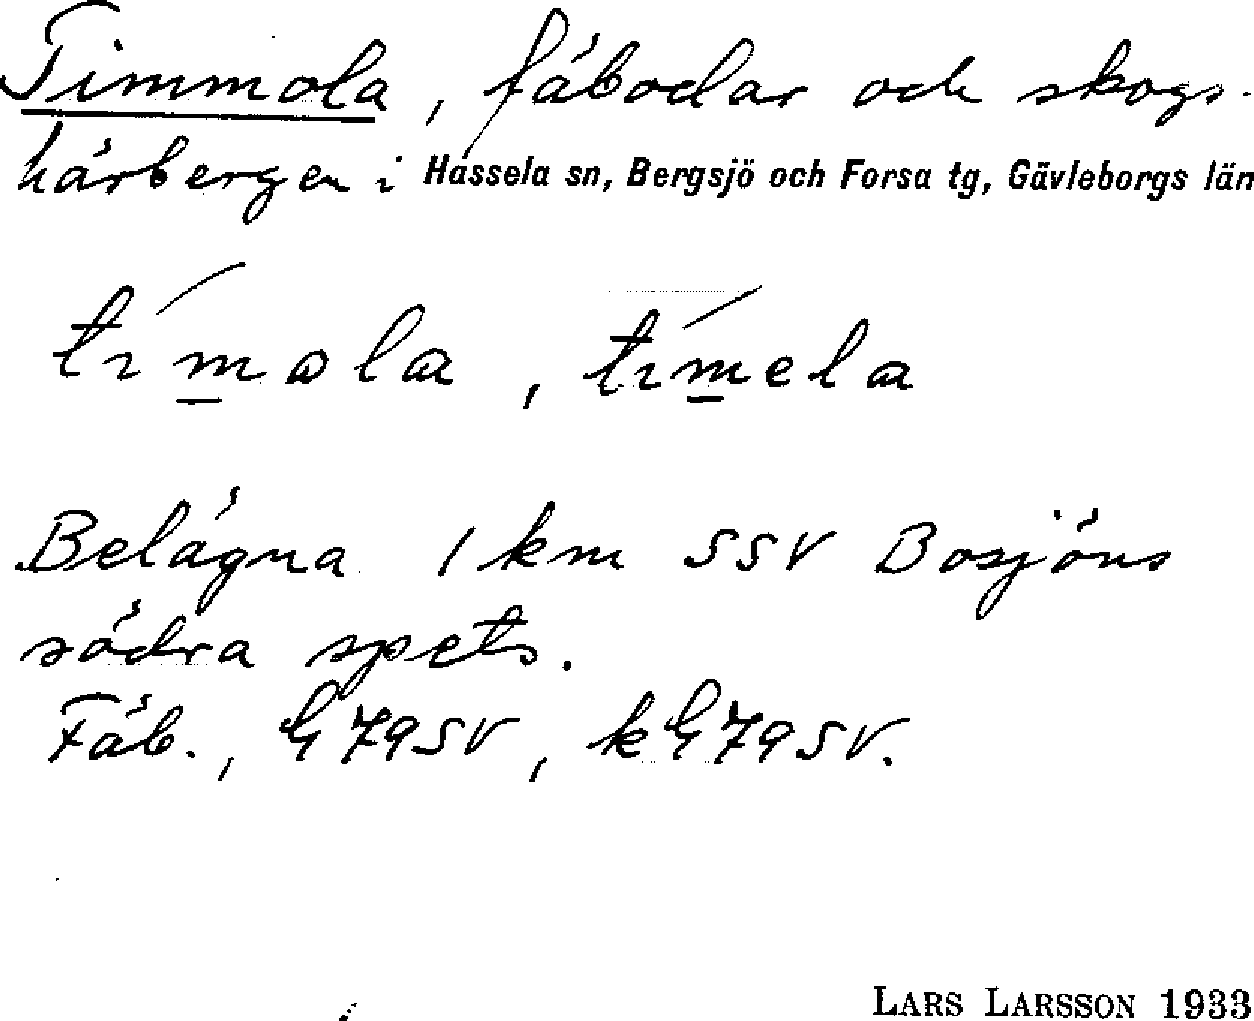 Timmola, fäbodar och skogs-
härbergen i Hassela sn, Bergsjö och Forsa tg, Gävleborgs län
tımola, tımela
Belägna 1 km SSV Bosjöns
södra spets.
Fäb., G79SV, kG79SV.
LARS LARSSON 1933